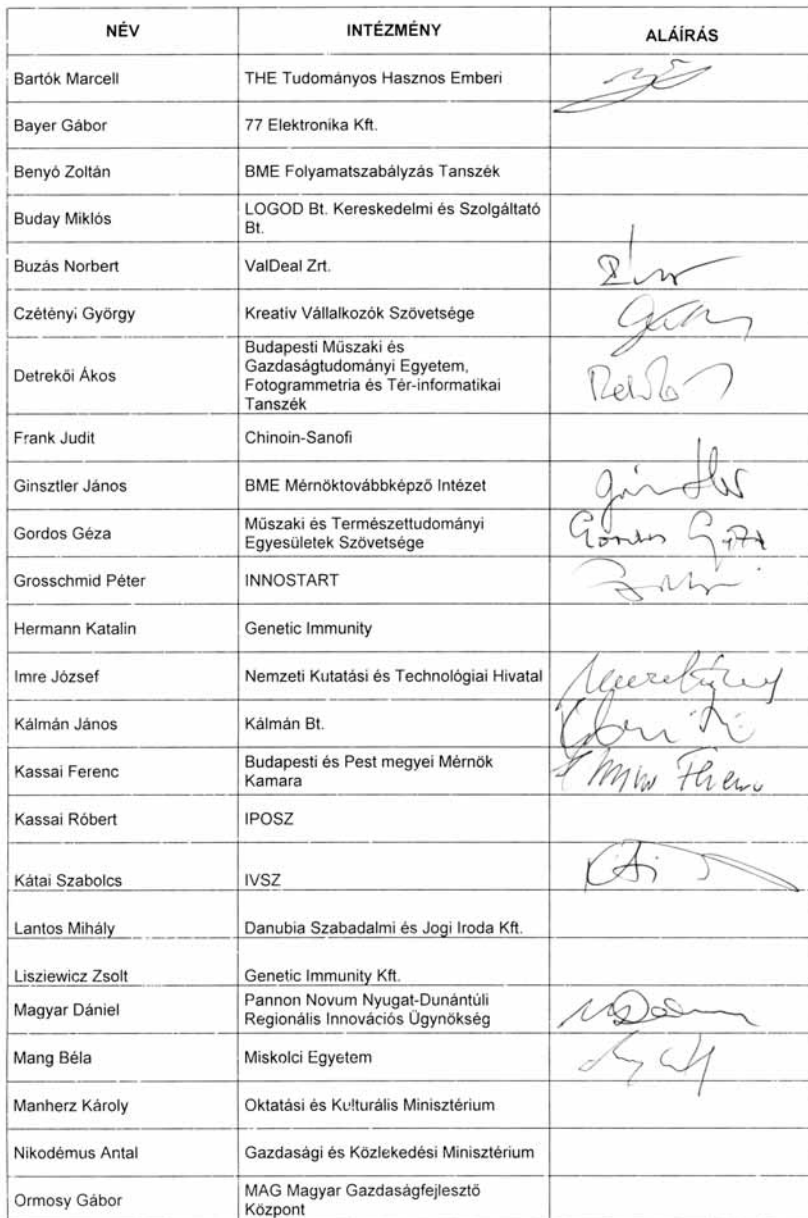 NÉV INTÉZMÉNY ALÁÍRÁS
Bartók Marcell THE Tudományos Hasznos Emberi
Bayer Gábor 77 Elektronika Kft.
Benyó Zoltán BME Folyamatszabályzás Tanszék
Buday Miklós LOGOD Bt. Kereskedelmi és Szolgáltató
Bt.
Buzás Norbert ValDeal Zrt.
Czétényi György Kreatív Vállalkozók Szövetsége
Detrekői Ákos Budapesti Műszaki és
Gazdaságtudományi Egyetem,
Fotogrammetria és Tér-informatikai
Tanszék
Frank Judit Chinoin-Sanofi
Ginsztler János BME Mérnöktovábbképző Intézet
Gordos Géza Műszaki és Természettudományi
Egyesületek Szövetsége
Gordos Géza
Grosschmid Péter INNOSTART
Hermann Katalin Genetic Immunity
Imre József Nemzeti Kutatási és Technológiai Hivatal
Kálmán János Kálmán Bt.
Kassai Ferenc Budapesti és Pest megyei Mérnök
Kamara
Kassai Róbert IPOSZ
Kátai Szabolcs IVSZ
Lantos Mihály Danubia Szabadalmi és Jogi Iroda Kft.
Lisziewicz Zsolt Genetic Immunity Kft.
Magyar Dániel Pannon Novum Nyugat-Dunántúli
Regionális Innovációs Ügynökség
Mang Béla Miskolci Egyetem
Manherz Károly Oktatási és Kulturális Minisztérium
Nikodémus Antal Gazdasági és Közlekedési Minisztérium
Ormosy Gábor MAG Magyar Gazdaságfejlesztő
Központ